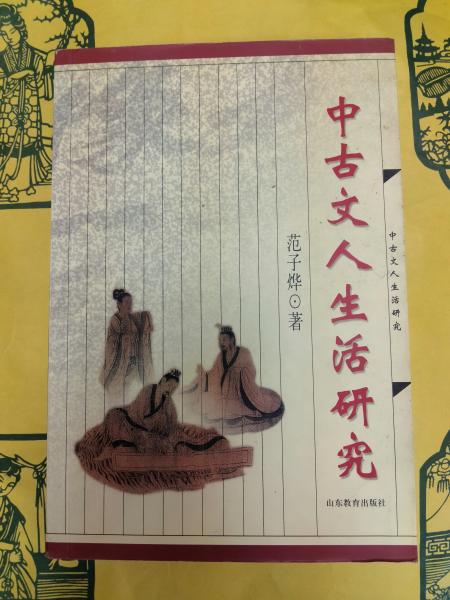 中古文人生活研究
中古文人生活研究
范子烨⊙著
山东教育出版社